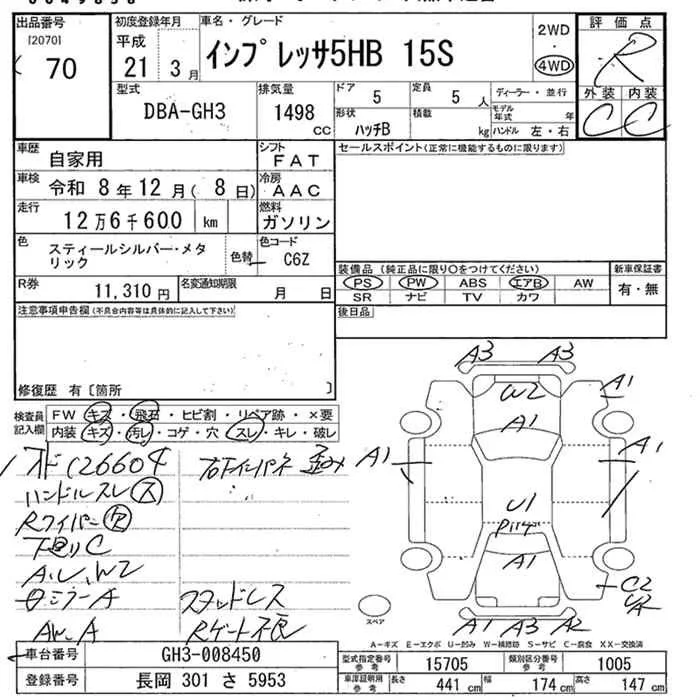 出品番号 [2070] 70
初度登録年月 平成 21 3月
車名・グレード インプレッサ5HB 15S
2WD
4WD
評価点 R
型式 DBA-GH3
排気量 1498 CC
ドア 5
定員 5人
ディーラー・並行
形状 ハッチB
積載 kg
モデル年式 年
ハンドル 左・右
外装 内装
C C
車歴 自家用
シフト FAT
セールスポイント(正常に機能するものに限ります)
車検 令和 8年12月( 8日)
冷房 AAC
走行 12万6千600 km
燃料 ガソリン
色 スティールシルバー・メタリック
色替
色コード C6Z
R券 11,310円
名変通知期限 月 日
装備品(純正品に限り○をつけてください)
新車保証書
PS PW ABS エアB AW
有・無
SR ナビ TV カワ
注意事項申告欄(不具合内容等は具体的に記入して下さい)
後日品
修復歴 有〔箇所 〕
検査員記入欄
FW キズ・飛石・ヒビ割・リペア跡・×要
内装 キズ・汚レ・コゲ・穴・スレ・キレ・破レ
A3 A3
W2
A1
A1
A1
A1
U1
A1
C2
A1 A3 A2
126604
ハンドルスレ ス
Rワイパー 欠
下廻りC
A.U.W2
ミラーA
AW.A
右下インパネ 歪み
スタッドレス
Rゲート不良
スペア
A-キズ E-エクボ U-凹み W-補修跡 S-サビ C-腐食 XX-交換済
車台番号 GH3-008450
登録番号 長岡 301 さ 5953
型式指定番号 参考 15705
類別区分番号 参考 1005
車庫証明用 参考 長さ 441 cm 幅 174 cm 高さ 147 cm